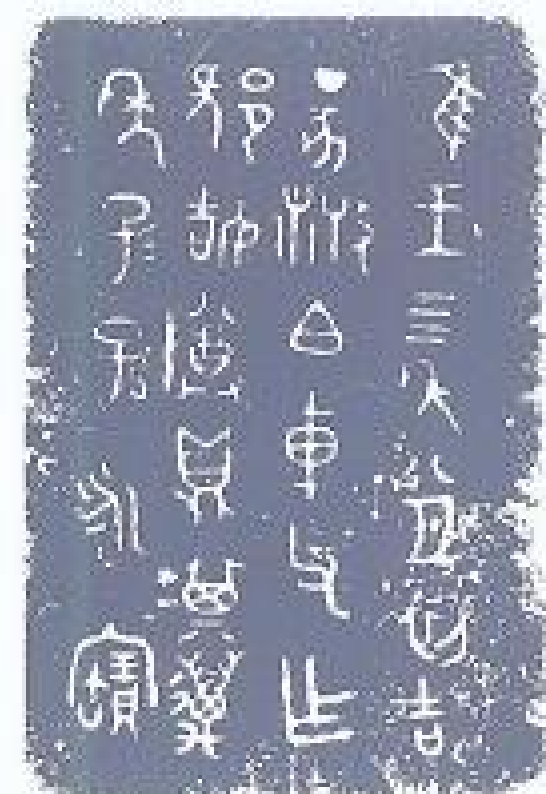 隹王四年八月初吉
丁亥散白車父乍
邪姞尊鼎其萬
年子=孫永寶